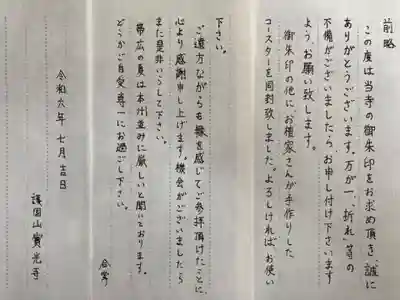 前略
この度は当寺の御朱印をお求め頂き、誠に
ありがとうございます。万が一、「折れ」等の
不備がございましたらお申し付け下さいます
よう、お願い致します。
御朱印の他にお檀家さんが手作りした
コースターを同封致しました。よろしければ、お使い
下さい。
ご遠方ながらも機を感じてご参拝頂けたことに、
心より感謝申し上げます。機会がございましたら
また是非いらして下さい。
帯広の夏は本州並みに厳しいと聞いております。
どうかご自愛専一にお過し下さい。
合掌
令和六年 七月 吉日
護国山寳光寺